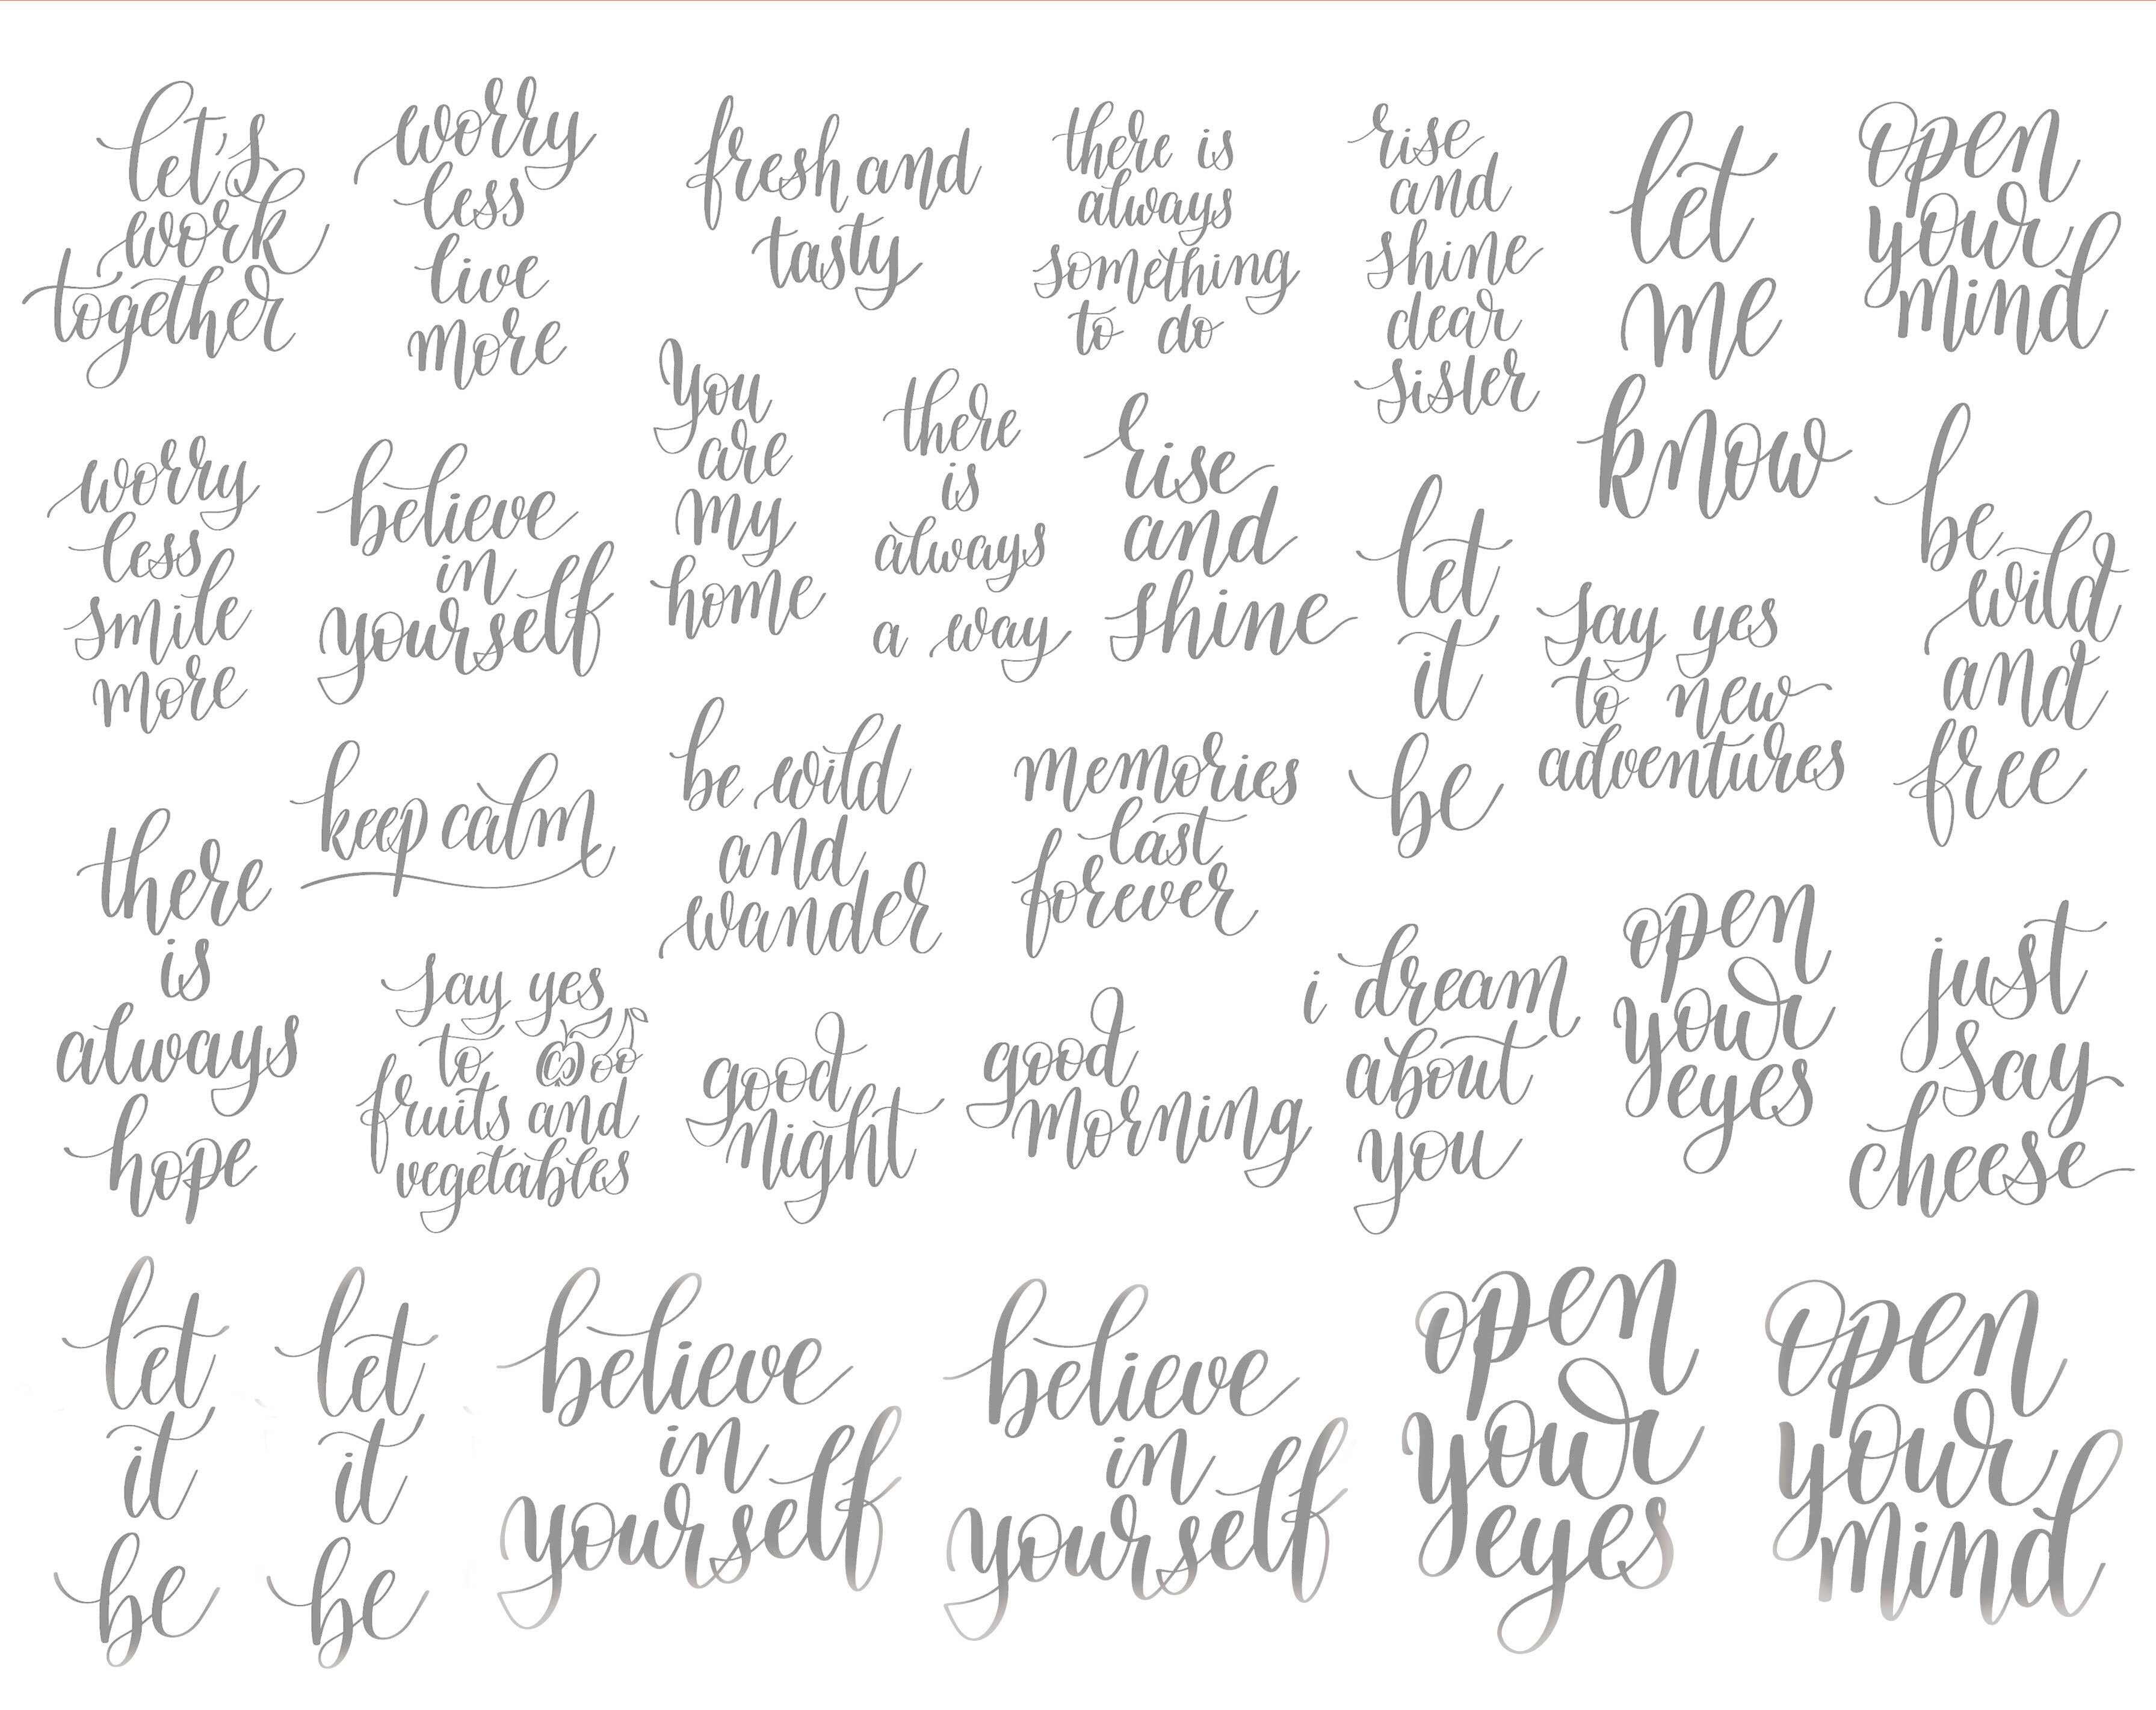 let's
work
together
worry
less
live
more
fresh and
tasty
there is
always
something
to do
rise
and
shine
dear
sister
let
me
know
open
your
mind
worry
less
smile
more
believe
in
yourself
You
are
my
home
there
is
always
a way
rise
and
shine
let
it
be
say yes
to new
adventures
be
wild
and
free
there
is
always
hope
keep calm
be wild
and
wander
memories
last
forever
say yes
to
fruits and
vegetables
good
night
good
morning
i dream
about
you
open
your
eyes
just
say
cheese
let
it
be
let
it
be
believe
in
yourself
believe
in
yourself
open
your
eyes
open
your
mind